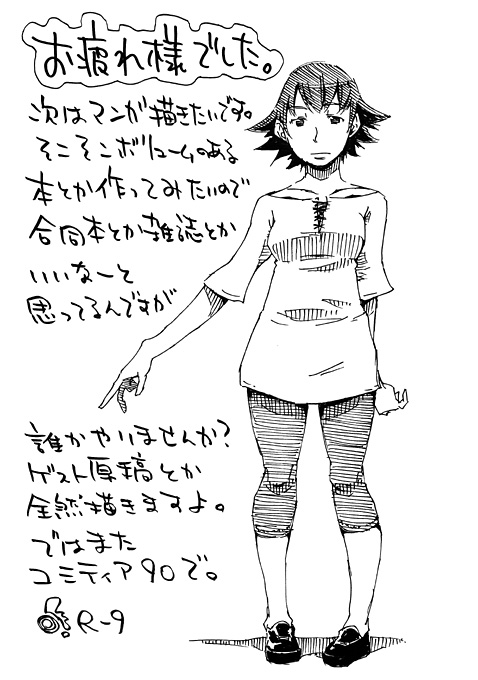 お疲れ様でした。
次はマンガ描きたいです。
そこそこボリュームのある
本とか作ってみたいので
合同本とか雑誌とか
いいなーと
思ってるんですが
誰かやいませんか?
ゲスト原稿とか
全然描きますよ。
ではまた
コミティア90で。
R-9